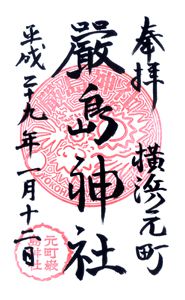 奉拝
横浜元町
嚴島神社
平成二十九年一月十二日
元町嚴島神社